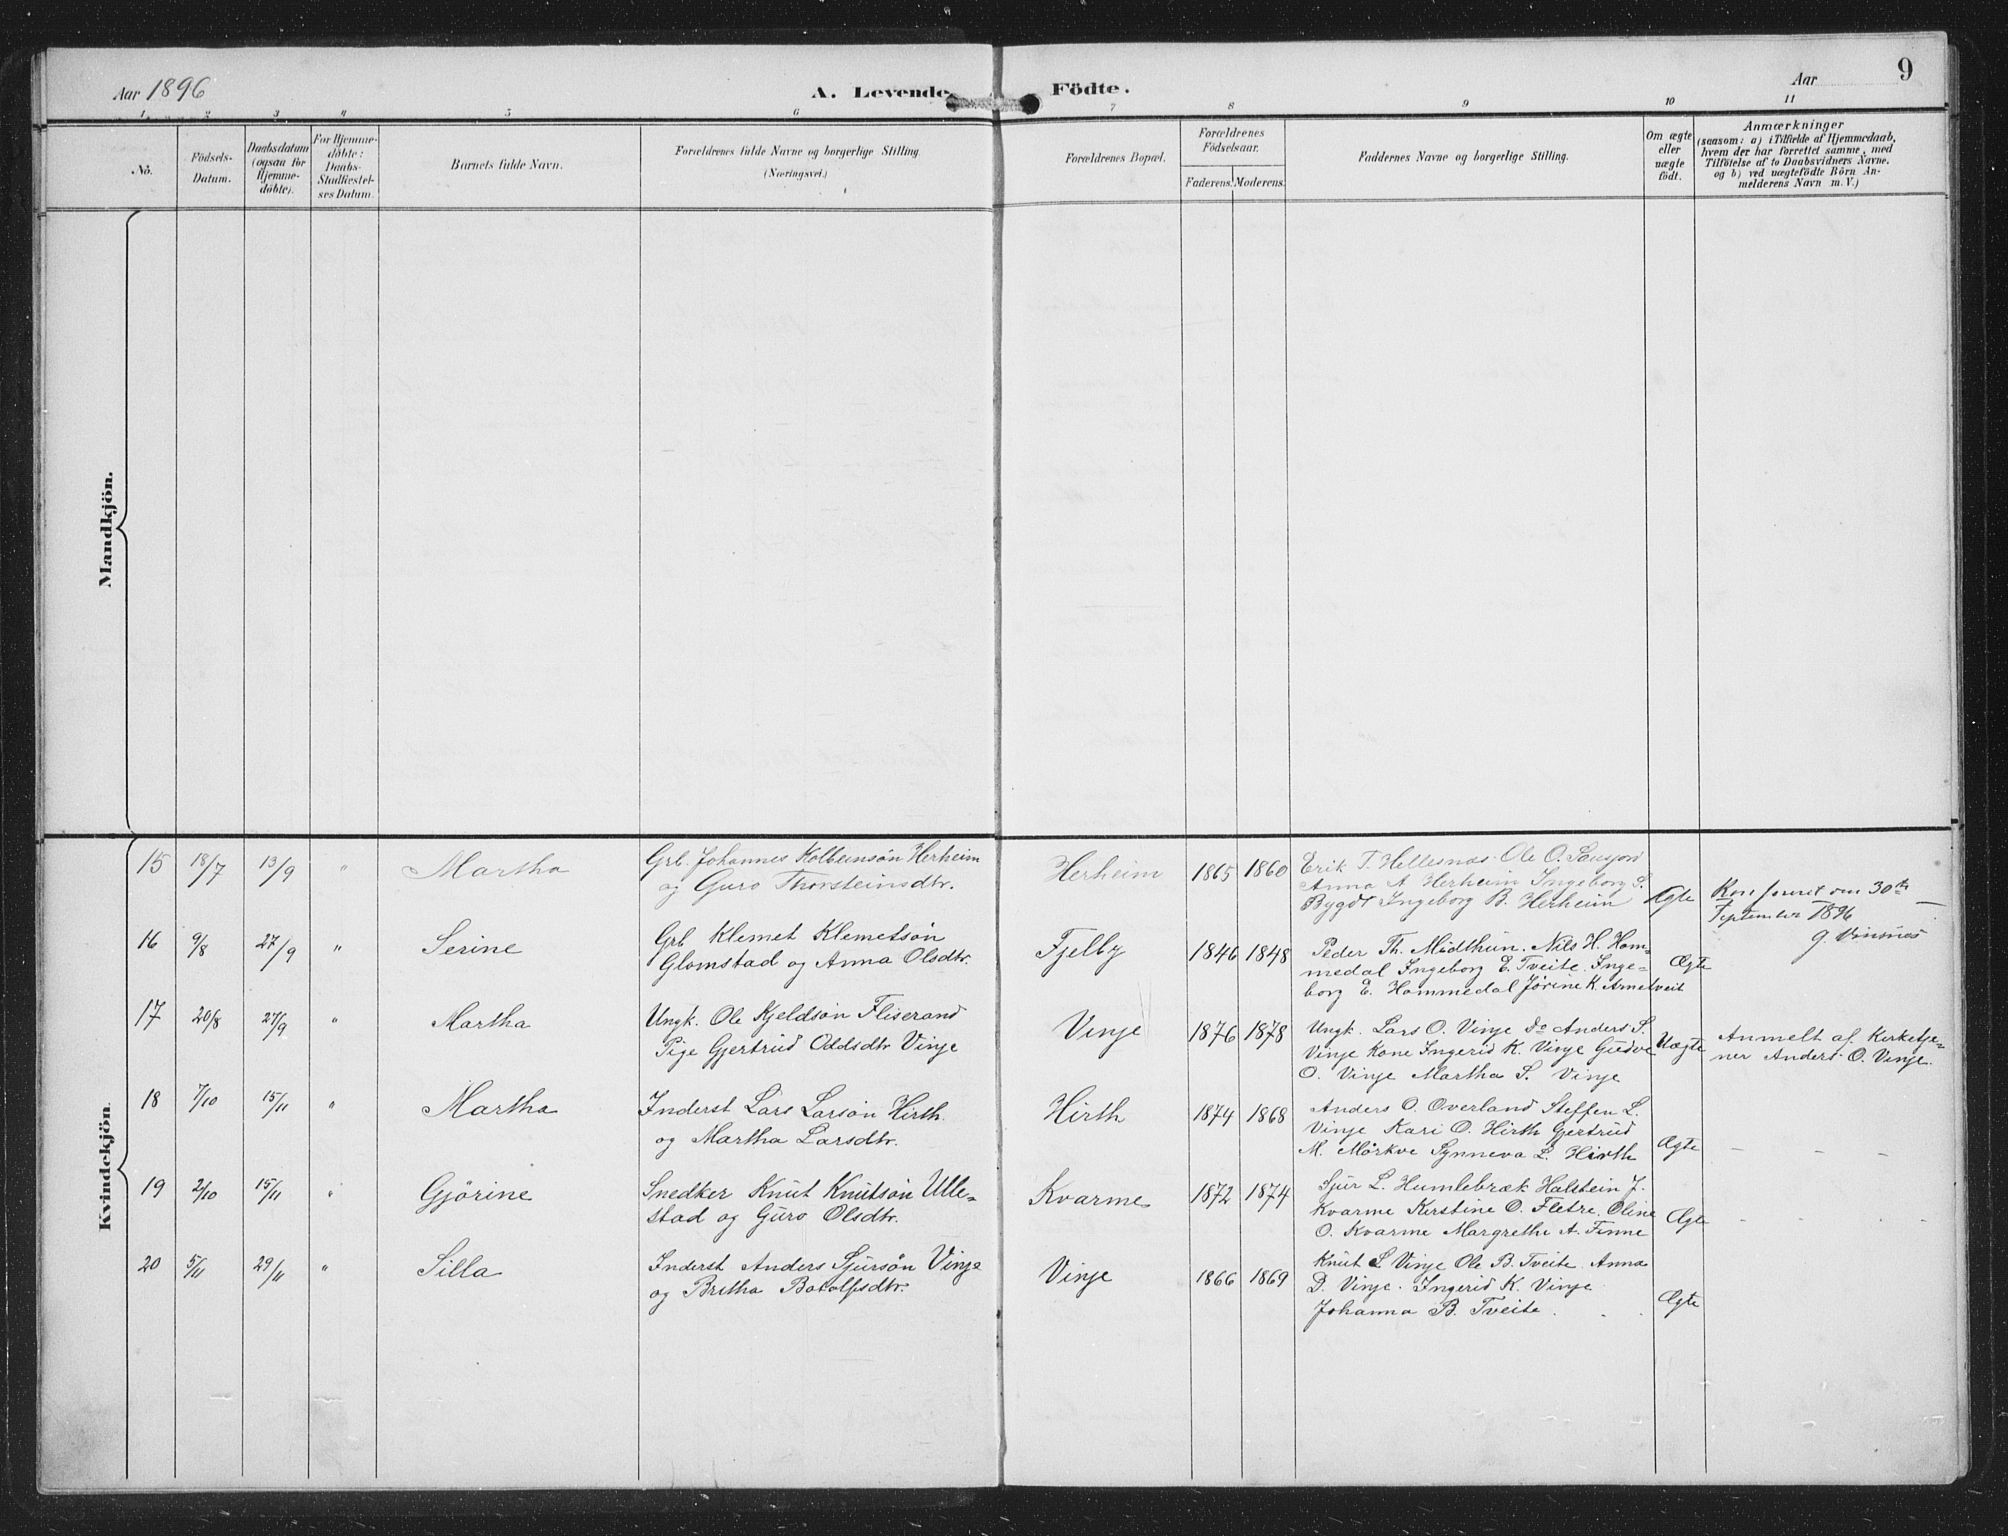 Aar 1896
A. Levende Födte.
Aar
9
1. 2 3 4 5 6 7 8 9 10 11
No.
Födsels-
Datum.
Daabsdatum
(ogsaa for
Hjemme-
döbte).
For Hjemme-
döbte:
Daabs-
Stadfæstel-
ses Datum.
Barnets fulde Navn.
Forældrenes fulde Navne og borgerlige Stilling.
(Næringsvei.)
Forældrenes Bopæl.
Forældrenes
Födselsaar.
Faderens. Moderens.
Faddernes Navne og borgerlige Stilling.
Om ægte
eller
uægte
födt.
Anmærkninger
(saasom: a) i Tilfælde af Hjemmedaab,
hvem der har forrettet samme, med
Tilföielse af to Daabsvidners Navne,
og b) ved uægtefödte Börn An-
melderens Navn m. V.)
Mandkjön.
Kvindekjön.
15 18/7 13/9 " Martha
Grb. Johannes Kolbeinsøn Herheim
og Guro Thorsteinsdtr.
Herheim 1865 1860
Erik T. Hellesnæs Ole O.
Anna A Herheim Ingeborg S.
Bygdt Ingeborg B. Herheim
Ægte
Konfereret den 30te
September 1896
16 9/8 27/9 " Serine
Grb Klemet Klemetsøn
Glomstad og Anna Olsdtr.
Fjelby 1846 1848
Peder Th. Midthun. Nils H. Hom-
medal Ingeborg E. Tveite. Inge-
borg E. Hommedal Jørine K. Arnetveit
Ægte
17 20/8 27/9 " Martha
Ungk. Ole Kjeldsøn Fliserand
Pige Gjertrud Oddsdtr Vinje
Vinje 1876 1878
Ungk. Lars O. Vinje do Anders S.
Vinje Kone Ingerid K. Vinje Gudve
O. Vinje Martha S. Vinje
Uægte
Anmelt af Kirketje-
ner Anders O. Vinje.
18 7/10 15/11 " Martha
Inderst Lars Larsøn Hirth
og Martha Larsdtr.
Hirth 1874 1868
Anders O. Overland Steffen L.
Vinje Kari O. Hirth Gjertrud
M. Mørkve Synneva L. Hirth
Ægte - - -
19 2/10 15/11 " Gjørine
Snedker Knut Knutsøn Ulle-
stad og Guro Olsdtr.
Kvarme 1872 1874
Sjur L. Humlebræk Halstein J.
Kvarme Kirstine O. Fletre. Oline
O. Kvarme Margrethe A. Finne
Ægte - - - -
20 5/11 29/11 " Silla
Inderst Anders Sjursøn Vinje
og Britha Botolfsdtr.
Vinje 1866 1869
Knut S Vinje Ole B. Tveite. Anna
D. Vinje. Ingerid K. Vinje
Johanna B. Tveite.
Ægte